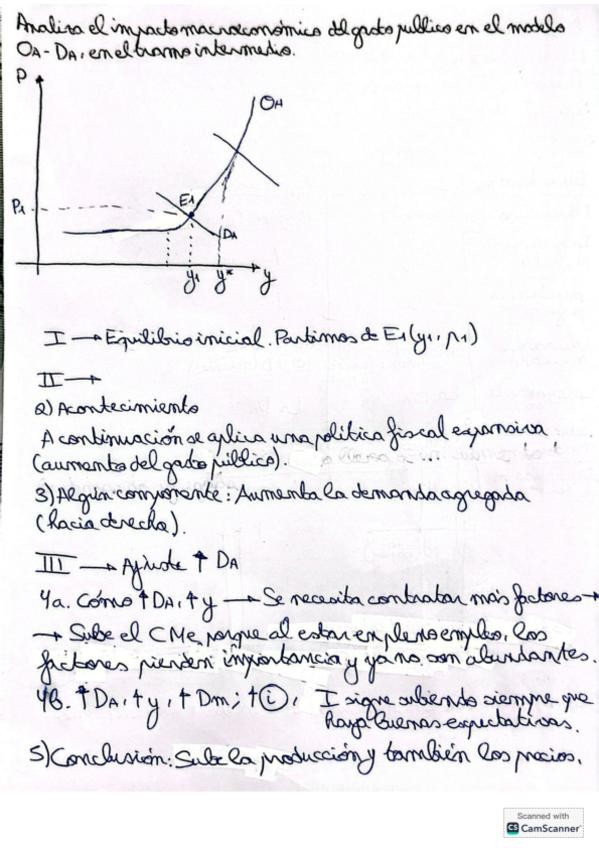 Analiza el impacto macroeconómico del gasto publico en el modelo
OA - DA, en el tramo intermedio.
P
OA
P1
E1
DA
y1 y* y
I → Equilibrio inicial. Partimos de E1 (y1, p1)
II →
2) Acontecimiento
A continuación se aplica una política fiscal expansiva
(aumento del gasto público).
3) Algún componente: Aumenta la demanda agregada
(hacia derecha).
III → Ajuste ↑ DA
4a. Cómo ↑ DA, ↑ y → Se necesita contratar más factores →
→ Sube el CMe, porque al estar en pleno empleo, los
factores pierden importancia y ya no son abundantes.
4b. ↑ DA, ↑ y, ↑ Dm; ↑ i, I sigue subiendo siempre que
haya buenas expectativas.
5) Conclusión: Sube la producción y también los precios.
Scanned with
CS CamScanner